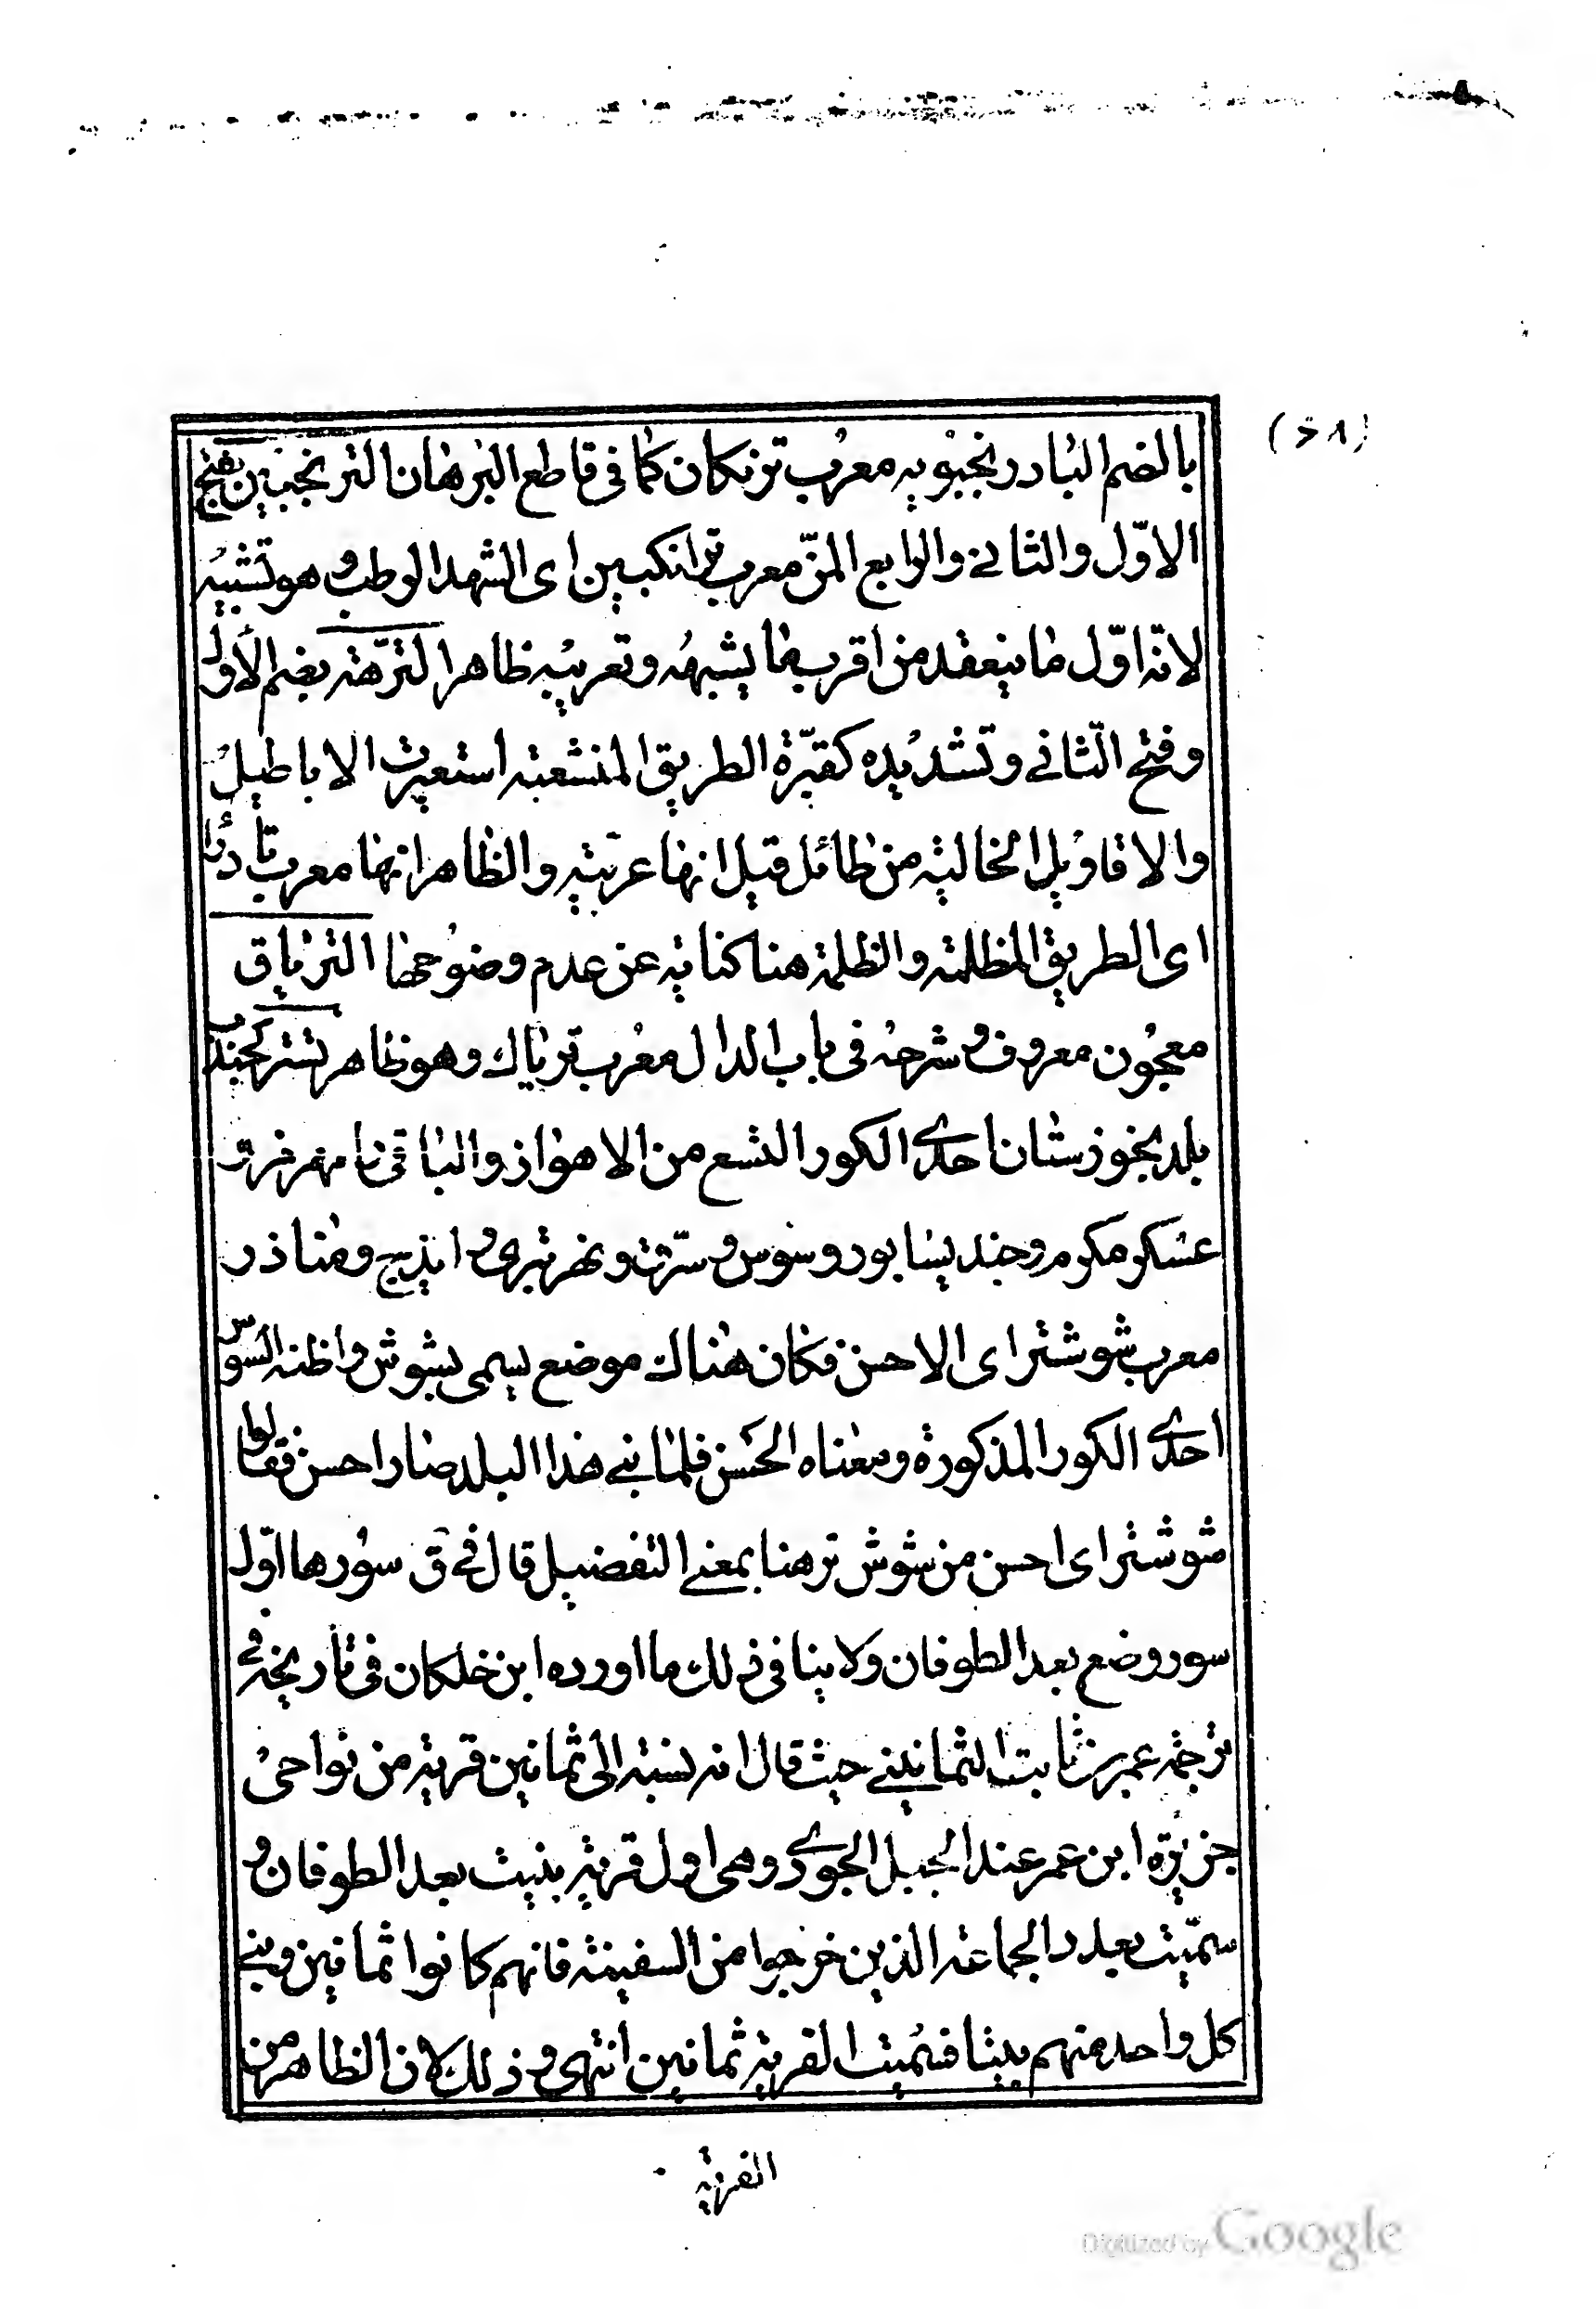 (٦٨)
بالضم البادرنجبويه معرب ترنكان كما فى قاطع البرهان الترنجبين بفتح
الاوّل والثانے والرابع المنّ معرب ترانكبين اى الشهد الرطب وهو تشبيه
لانّه اوّل ما ينعقد من اقرب ما يشبهه وتعريبه ظاهر الترّهة بضم الأول
وفتح الثانے وتشديده كقبّرة الطريق المنشعبة استعيرت الاباطيل
والاقاويل الخالية من طائل قيل انها عربيّة والظاهر انها معرب
اى الطريق المظلمة والظلمة هنا كناية عن عدم وضوحها الترياق
معجون معروف وشرحه فى باب الدال معرب ترياك وهو ظاهر تستر كجندب
بلد بخوزستان احدى الكور التسع من الاهواز والباقى
عسكر مكرم وجنديسابور وسوس وسرّق ونهر تيرى وايذج ومناذر
معرب شوشتر اى الاحسن فكان هناك موضع يسمى بشوش واظنه السوس
احدى الكور المذكورة ومعناه الحسن فلما بنے هذا البلد صار احسن فقالوا
شوشتر اى احسن من شوش تر هنا بمعنے التفضيل قال فے ق سورها اوّل
سور وضع بعد الطوفان ولا ينافى ذلك ما اورده ابن خلكان فى تاريخه فے
ترجمة عمر بن ثابت الثمانينے حيث قال انه نسبة الى ثمانين قرية من نواحى
جزيرة ابن عمر عند الجبل الجودى وهى اول قرية بنيت بعد الطوفان و
سمّيت بعدد الجماعة الذين خرجوا من السفينة فانهم كانوا ثمانين وبنے
كل واحد منهم بيتا فسميت القرية ثمانين انتهى وذلك لان الظاهر من
القرية
Digitized by Google